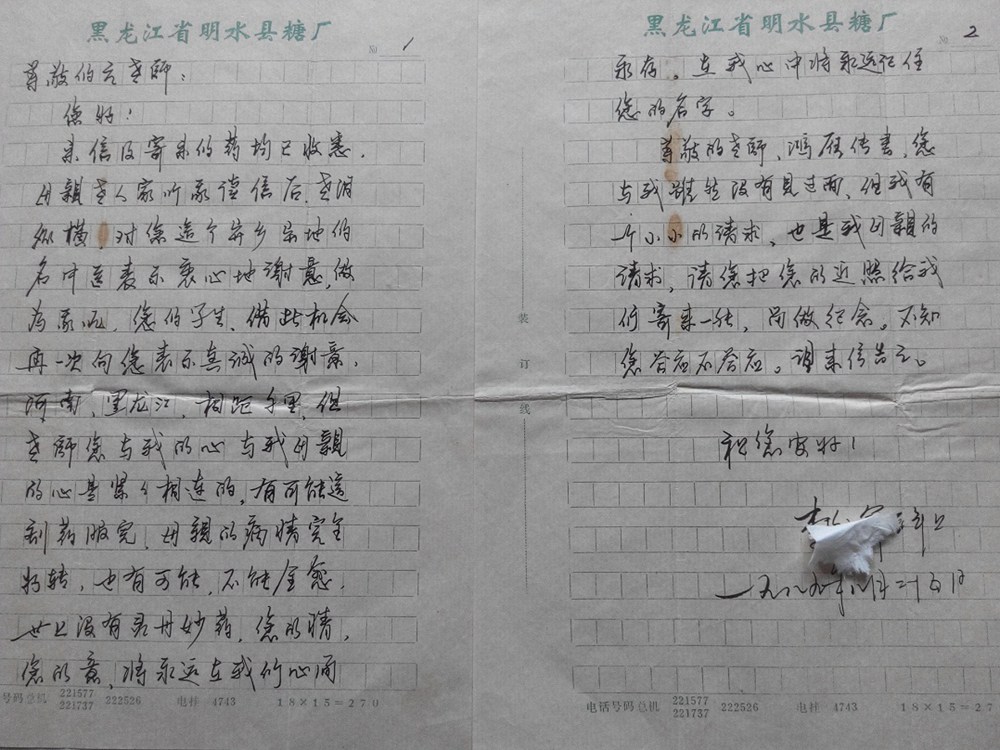 黑龙江省明水县糖厂
№ 1
尊敬的言老师:
您好!
来信及寄来的药均已收悉,
母親老人家听家信后,老泪
纵横,对您这个异乡异地的
名中医表示衷心地谢意,做
为您的学生,借此机会
再一次向您表示真诚的谢意,
河南、黑龙江,相距千里,但
老师您与我的心与我母親
的心是紧々相连的,有可能这
剂药服完,母親的病情完全
好转,也有可能,不能全愈,
世上没有灵丹妙药,您的情,
您的意,将永远在我们心间
号码总机 221577 221737 222526 电挂 4743 18×15=270
装订线
黑龙江省明水县糖厂
№ 2
永存。在我心中将永远记住
您的名字。
尊敬的老师,鸿雁传书,您
与我虽然没有见过面,但我有
一个小小的请求,也是我母親的
请求,请您把您的近照给我
们寄来一张,留做纪念。不知
您答应不答应。请来信告之。
祝您安好!
李
一九八九年八月二十五日
电话号码总机 221577 221737 222526 电挂 4743 18×15=27